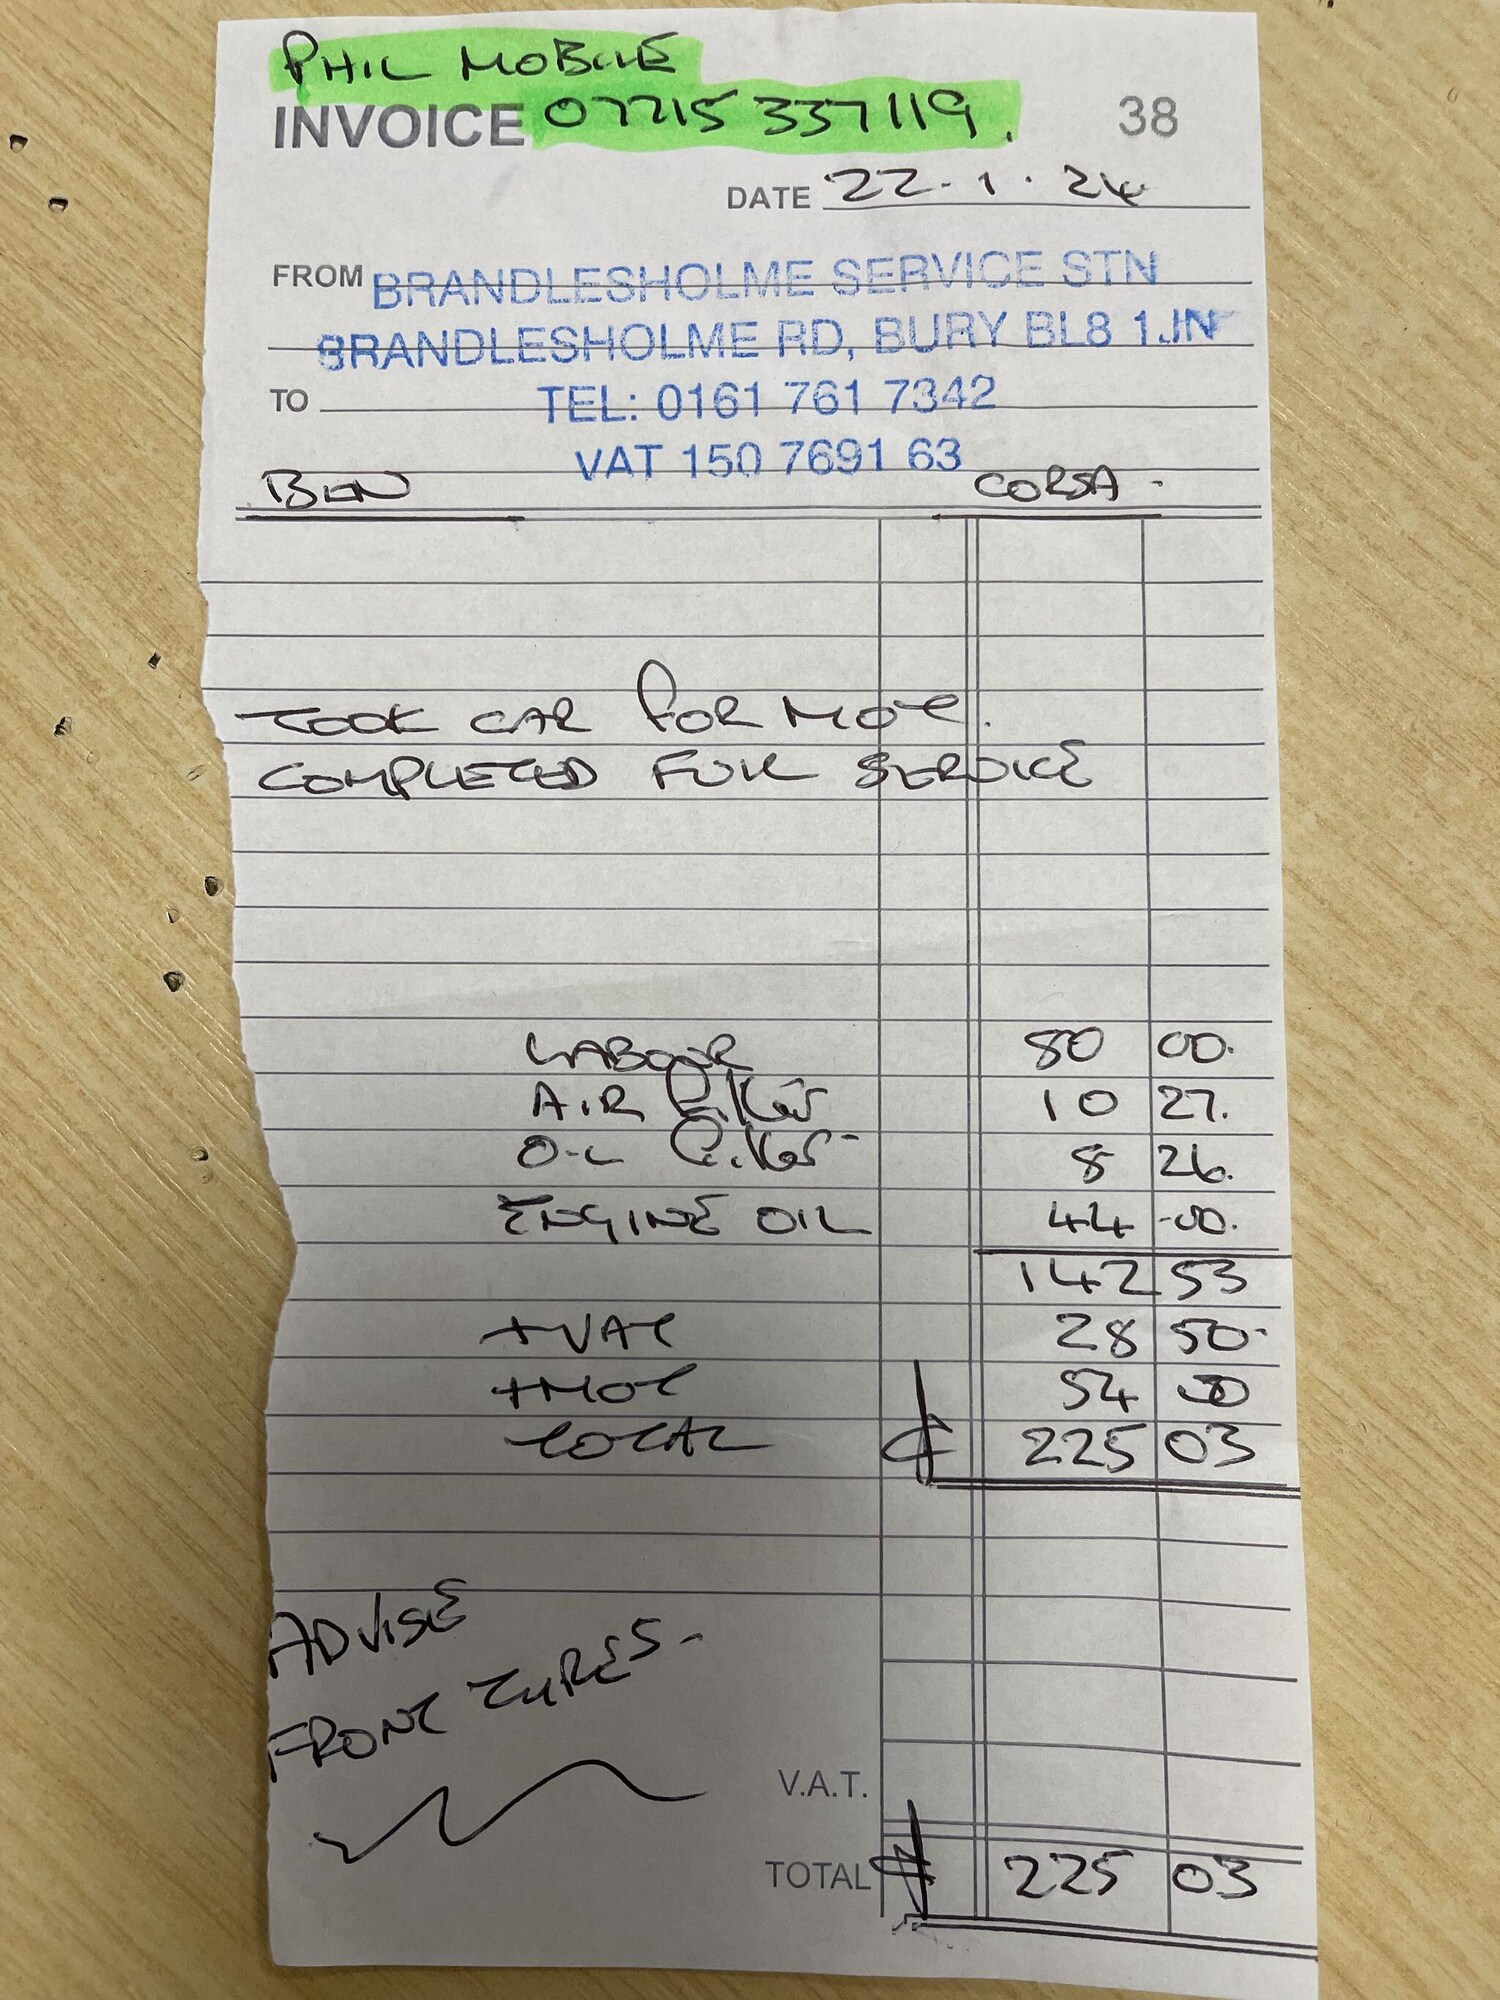 PHIL MOBILE
INVOICE 07715 337119. 38
DATE 22.1.24
FROM BRANDLESHOLME SERVICE STN
BRANDLESHOLME RD, BURY BL8 1JN
TO TEL: 0161 761 7342
VAT 150 7691 63
BEN CORSA
TOOK CAR FOR MOT.
COMPLETED FULL SERVICE
LABOUR 80 00.
AIR Filter 10 27.
OIL Filter 8 26.
ENGINE OIL 44 00.
142 53
+VAT 28 50
+MOT 54 00
TOTAL £ 225 03
ADVISE
FRONT TYRES
V.A.T.
TOTAL £ 225 03